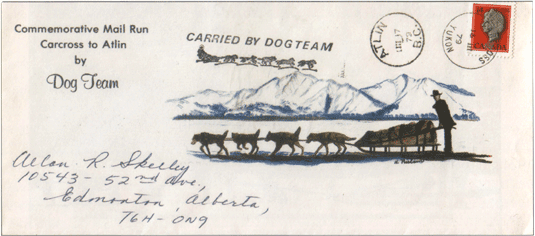 Commemorative Mail Run
Carcross to Atlin
by
Dog Team
CARRIED BY DOGTEAM
ATLIN
B.C.
YUKON
Allan R.
10543 - 52nd Ave,
Edmonton, Alberta,
T6H-0N9